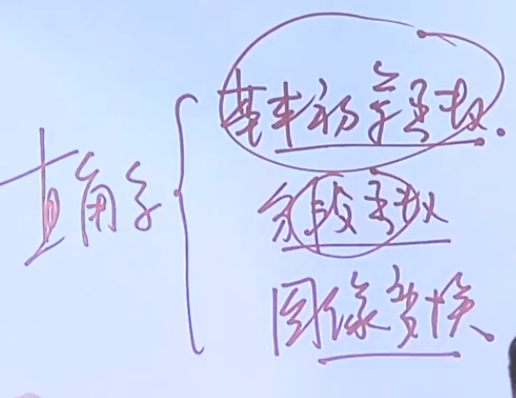 直角系
基本初等函数.
分段函数
图像变换.